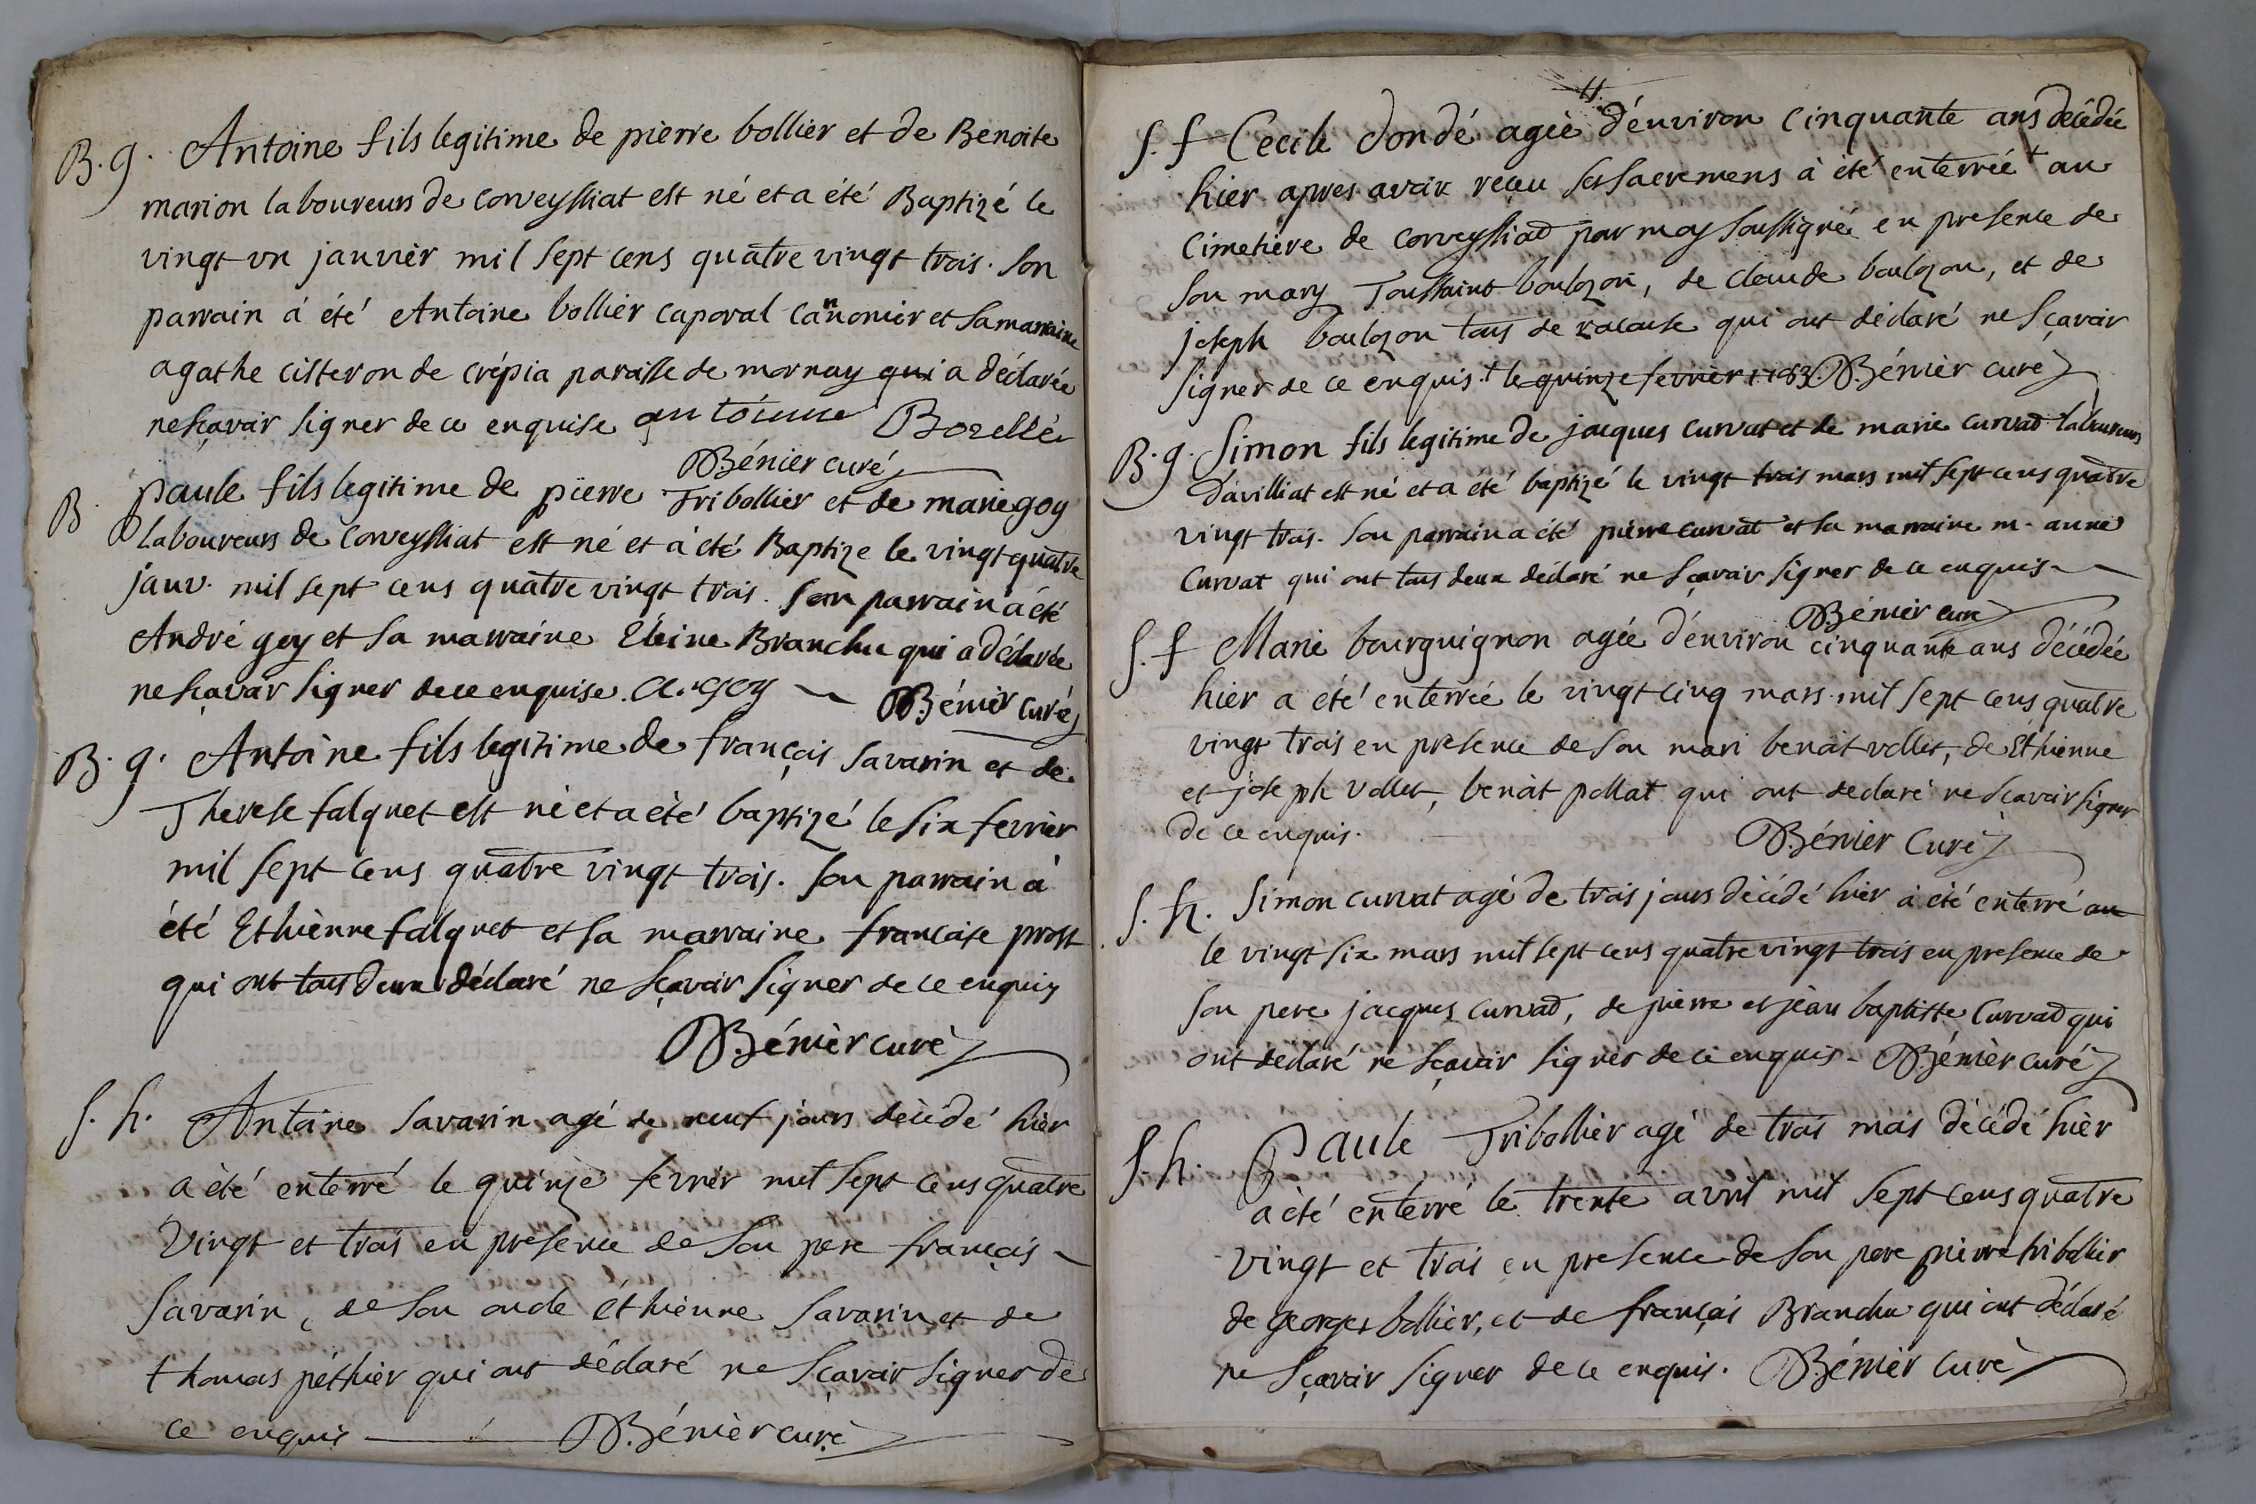 B. g. Antoine fils legitime de pierre bollier et de Benoite
marion laboureurs de corveyssiat est né et a été Baptizé le
vingt un janvièr mil sept cens quatre vingt trois. son
parrain á été Antoine bollier caporal canonièr et sa marraine
agathe cisteron de crépia paroisse de mornay qui a déclarée
ne sçavoir signer de ce enquise antoinne Borellié
Bénier curé
B. paule fils legitime de pïerre Tribollier et de marie goy
laboureurs de corveyssiat est né et à été Baptize le vingt quatre
janv. mil sept cens quatre vingt trois. son parrain a été
André goy et sa marraine Eléine Branchu qui a déclarée
ne sçavoir signer de ce enquise. a. goy Bénièr curé
B. g. Antoine fils legitime de françois savarin et de
Therese falquet est né et a été baptizé le six fevrièr
mil sept cens quatre vingt trois. son parrain á
été Ethiènne falquet et sa marraine francoise prost
qui ont tous deux déclaré ne sçavoir signer de ce enquis
Bénièr curé
s. h. Antoine savarin agé de neuf jours dècédé hièr
a été enterré le quinze fevrièr mil sept cens quatre
vingt et trois en presence de son pere françois
savarin, de son oncle éthiènne savarin et de
thomas péthier qui ont déclaré ne sçavoir signer de
ce enquis Bénièr curé
11.
s. f Cecile dondé agée d'énviron cinquante ans décédée
hier apres avoir reçeu ses sacremens à été enterrée + au
cimetière de corveyssiat par moy soussigné en presence de
son mary Toussaint boulozon, de claude boulozon, et de
joseph boulozon tous de racouse qui ont déclaré ne sçavoir
signer de ce enquis. + le quinze fevrièr 1783. Bénier curé
B. g. Simon fils legitime de jacques curvat et de marie curvat laboureurs
d'avilliat est né et a été baptizé le vingt trois mars mil sept cens quatre
vingt trois. son parrain a été pièrre curvat et sa marraine m. anne
curvat qui ont tous deux déclaré ne sçavoir signer de ce enquis
Bénièr curé
s. f Marie bourguignon agée d'énviron cinquante ans décédée
hièr a été enterrée le vingt cinq mars mil sept cens quatre
vingt trois en presence de son mari benoit vollet, de Ethienne
et joseph vollet, benoit pollat qui ont declaré ne scavoir signer
de ce enquis. Bénier curé
s. h. Simon curvat agé de trois jours décédé hièr à été enterré au
le vingt six mars mil sept cens quatre vingt trois en presence de
son pere jacques curvat, de pierre et jean baptiste curvat qui
ont declaré ne sçavoir signèr de ce enquis - Bénièr curé
s. h. Paule Tribollièr agé de trois mois décédé hièr
a été enterré le trente avril mil sept cens quatre
vingt et trois en presence de son pere pierre tribollier
de georges bollièr, et de françois Branchu qui ont déclaré
ne sçavoir signer de ce enquis. Bénièr curé